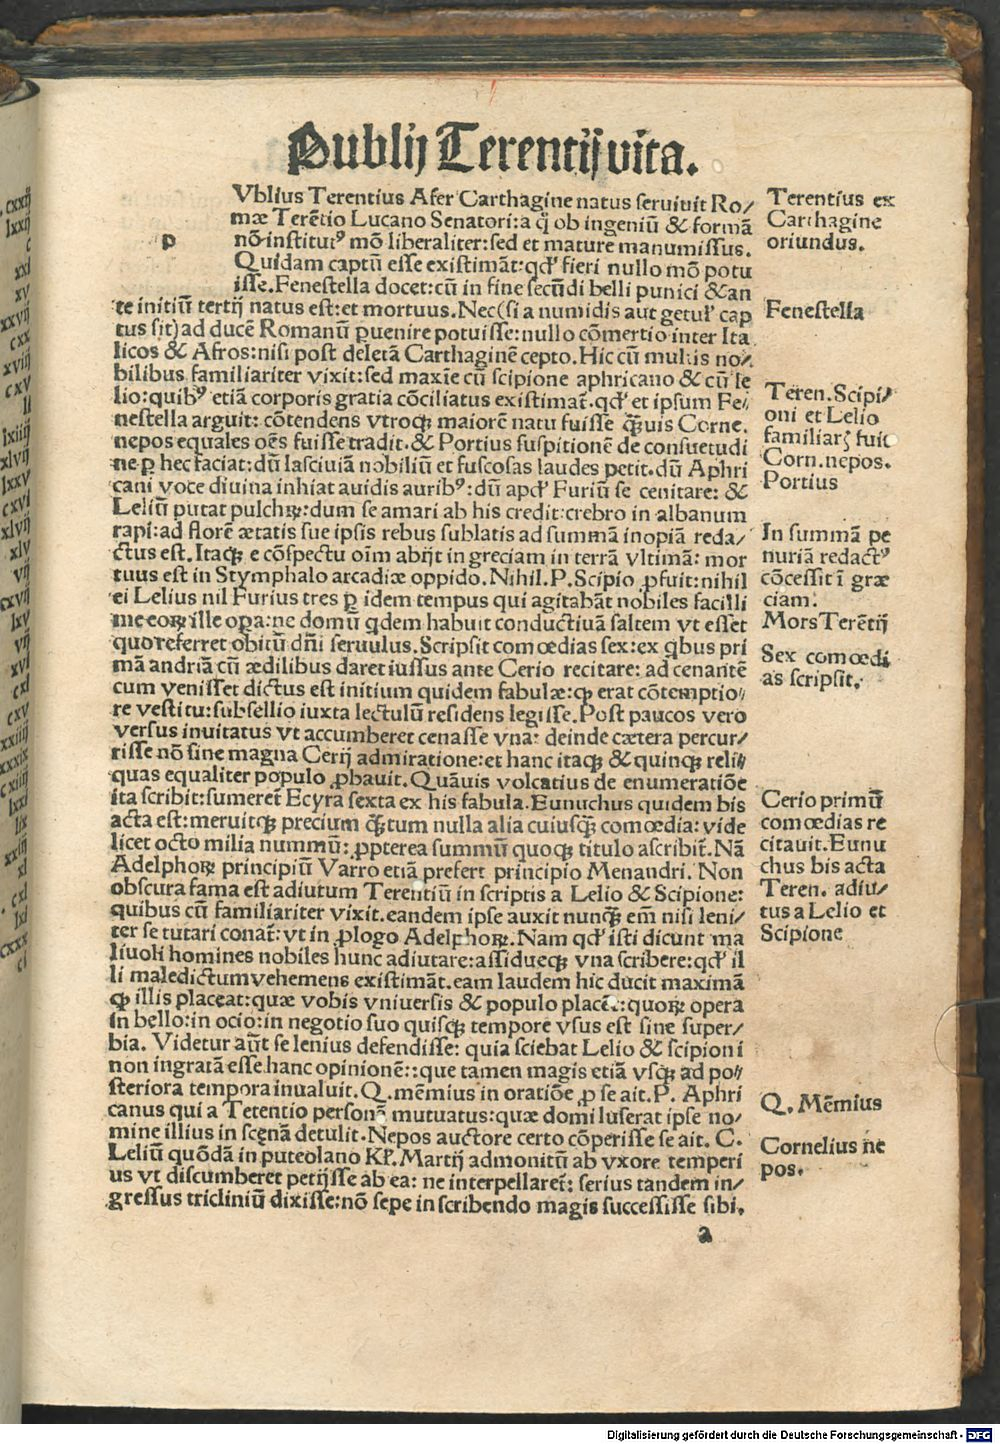 Publij Terentij vita.
Vblius Terentius Afer Carthagine natus seruiuit Ro/
mæ Terētio Lucano Senatori:a q̄ ob ingeniū & formā
p
nō institutꝰ mō liberaliter:sed et mature manumissus.
Quidam captū esse existimāt:qđ fieri nullo mō potu
isse.Fenestella docet:cū in fine secūdi belli punici & an
te initiū tertij natus est:et mortuus.Nec(si a numidis aut getul' cap
tus sit)ad ducē Romanū ꝑuenire potuisse:nullo cōmertio inter Ita
licos & Afros:nisi post deletā Carthaginē cepto.Hic cū multis no/
bilibus familiariter vixit:sed maxīe cū scipione aphricano & cū le
lio:quibꝰ etiā corporis gratia cōciliatus existimat̄.qđ et ipsum Fe/
nestella arguit: cōtendens vtroqꝫ maiorē natu fuisse q̄ꝫuis Corne.
nepos equales oēs fuisse tradit.& Portius suspitionē de consuetudi
ne ꝑ hec faciat:dū lasciuiā nobiliū et fuscosas laudes petit.dū Aphri
cani voce diuina inhiat auidis auribꝰ:dū apđ Furiū se cenitare: &
Leliū putat pulchrꝫ:dum se amari ab his credit:crebro in albanum
rapi:ad florē ætatis sue ipsis rebus sublatis ad summā inopiā reda/
ctus est.Itaqꝫ e cōspectu oīm abijt in greciam in terrā vltimā: mor
tuus est in Stymphalo arcadiæ oppido.Nihil.P.Scipio ꝓfuit:nihil
ei Lelius nil Furius tres ꝑ idem tempus qui agitabāt nobiles facilli
me eoꝝ ille opa:ne domū qdem habuit conductiuā saltem vt esset
quo referret obitū dñi seruulus.Scripsit comœdias sex:ex qbus pri
mā andriā cū ædilibus daret iussus ante Cerio recitare: ad cenantē
cum venisset dictus est initium quidem fabulæ:ꝙ erat cōtemptio/
re vestitu:subsellio iuxta lectulū residens legisse.Post paucos vero
versus inuitatus vt accumberet cenasse vna: deinde cætera percur/
risse nō sine magna Cerij admiratione:et hanc itaqꝫ & quinqꝫ reli/
quas equaliter populo ꝓbauit.Quāuis volcatius de enumeratiōe
ita scribit:sumeret̄ Ecyra sexta ex his fabula.Eunuchus quidem bis
acta est:meruitqꝫ precium q̄ꝫtum nulla alia cuiusq̄ꝫ comœdia: vide
licet octo milia nummū: ꝓpterea summū quoqꝫ titulo ascribit̄.Nā
Adelphoꝝ principiū Varro etiā prefert principio Menandri. Non
obscura fama est adiutum Terentiū in scriptis a Lelio & Scipione:
quibus cū familiariter vixit.eandem ipse auxit nunqꝫ em̄ nisi leni/
ter se tutari conat̄: vt in ꝓlogo Adelphoꝝ.Nam qđ isti dicunt ma
liuoli homines nobiles hunc adiutare:assidueqꝫ vna scribere:qđ il
li maledictum vehemens existimāt.eam laudem hic ducit maximā
ꝙ illis placeat:quæ vobis vniuersis & populo placēt:quoꝝ opera
in bello:in ocio:in negotio suo quisqꝫ tempore vsus est sine super/
bia. Videtur aūt se lenius defendisse: quia sciebat Lelio & scipioni
non ingratā esse hanc opinionē::que tamen magis etiā vsqꝫ ad po/
steriora tempora inualuit.Q.mēmius in oratiōe ꝓ se ait.P. Aphri
canus qui a Tetentio personā mutuatus:quæ domi luserat ipse no/
mine illius in scęnā detulit.Nepos auctore certo cōperisse se ait. C.
Leliū quōdā in puteolano Kl'.Martij admonitū ab vxore temperi
us vt discumberet petijsse ab ea: ne interpellaret̄: serius tandem in/
gressus tricliniū dixisse:nō sepe in scribendo magis successisse sibi.
a
Terentius ex
Carthagine
oriundus.
Fenestella
Teren.Scipi/
oni et Lelio
familiarꝭ fuit
Corn.nepos.
Portius
In summā pe
nuriā redactꝰ
cōcessit ī græ
ciam.
Mors Terētij
Sex comœdi
as scripsit.
Cerio primū
comœdias re
citauit.Eunu
chus bis acta
Teren. adiu/
tus a Lelio et
Scipione
Q. Mēmius
Cornelius ne
pos.
cxxij
lxxij
c
xxi
xv
xxvij
cxx
xviij
cxv
li
lxiiij
xlvij
lxxv
cxvi
xlvij
xlv
vij
cxvij
lxv
vij
xvi
cxl
cxv
xxiiij
xxxix
cxiiij
lxxi
lix
xxiij
xl
cxl
lxi
cxxx
ci
Digitalisierung gefördert durch die Deutsche Forschungsgemeinschaft - DFG